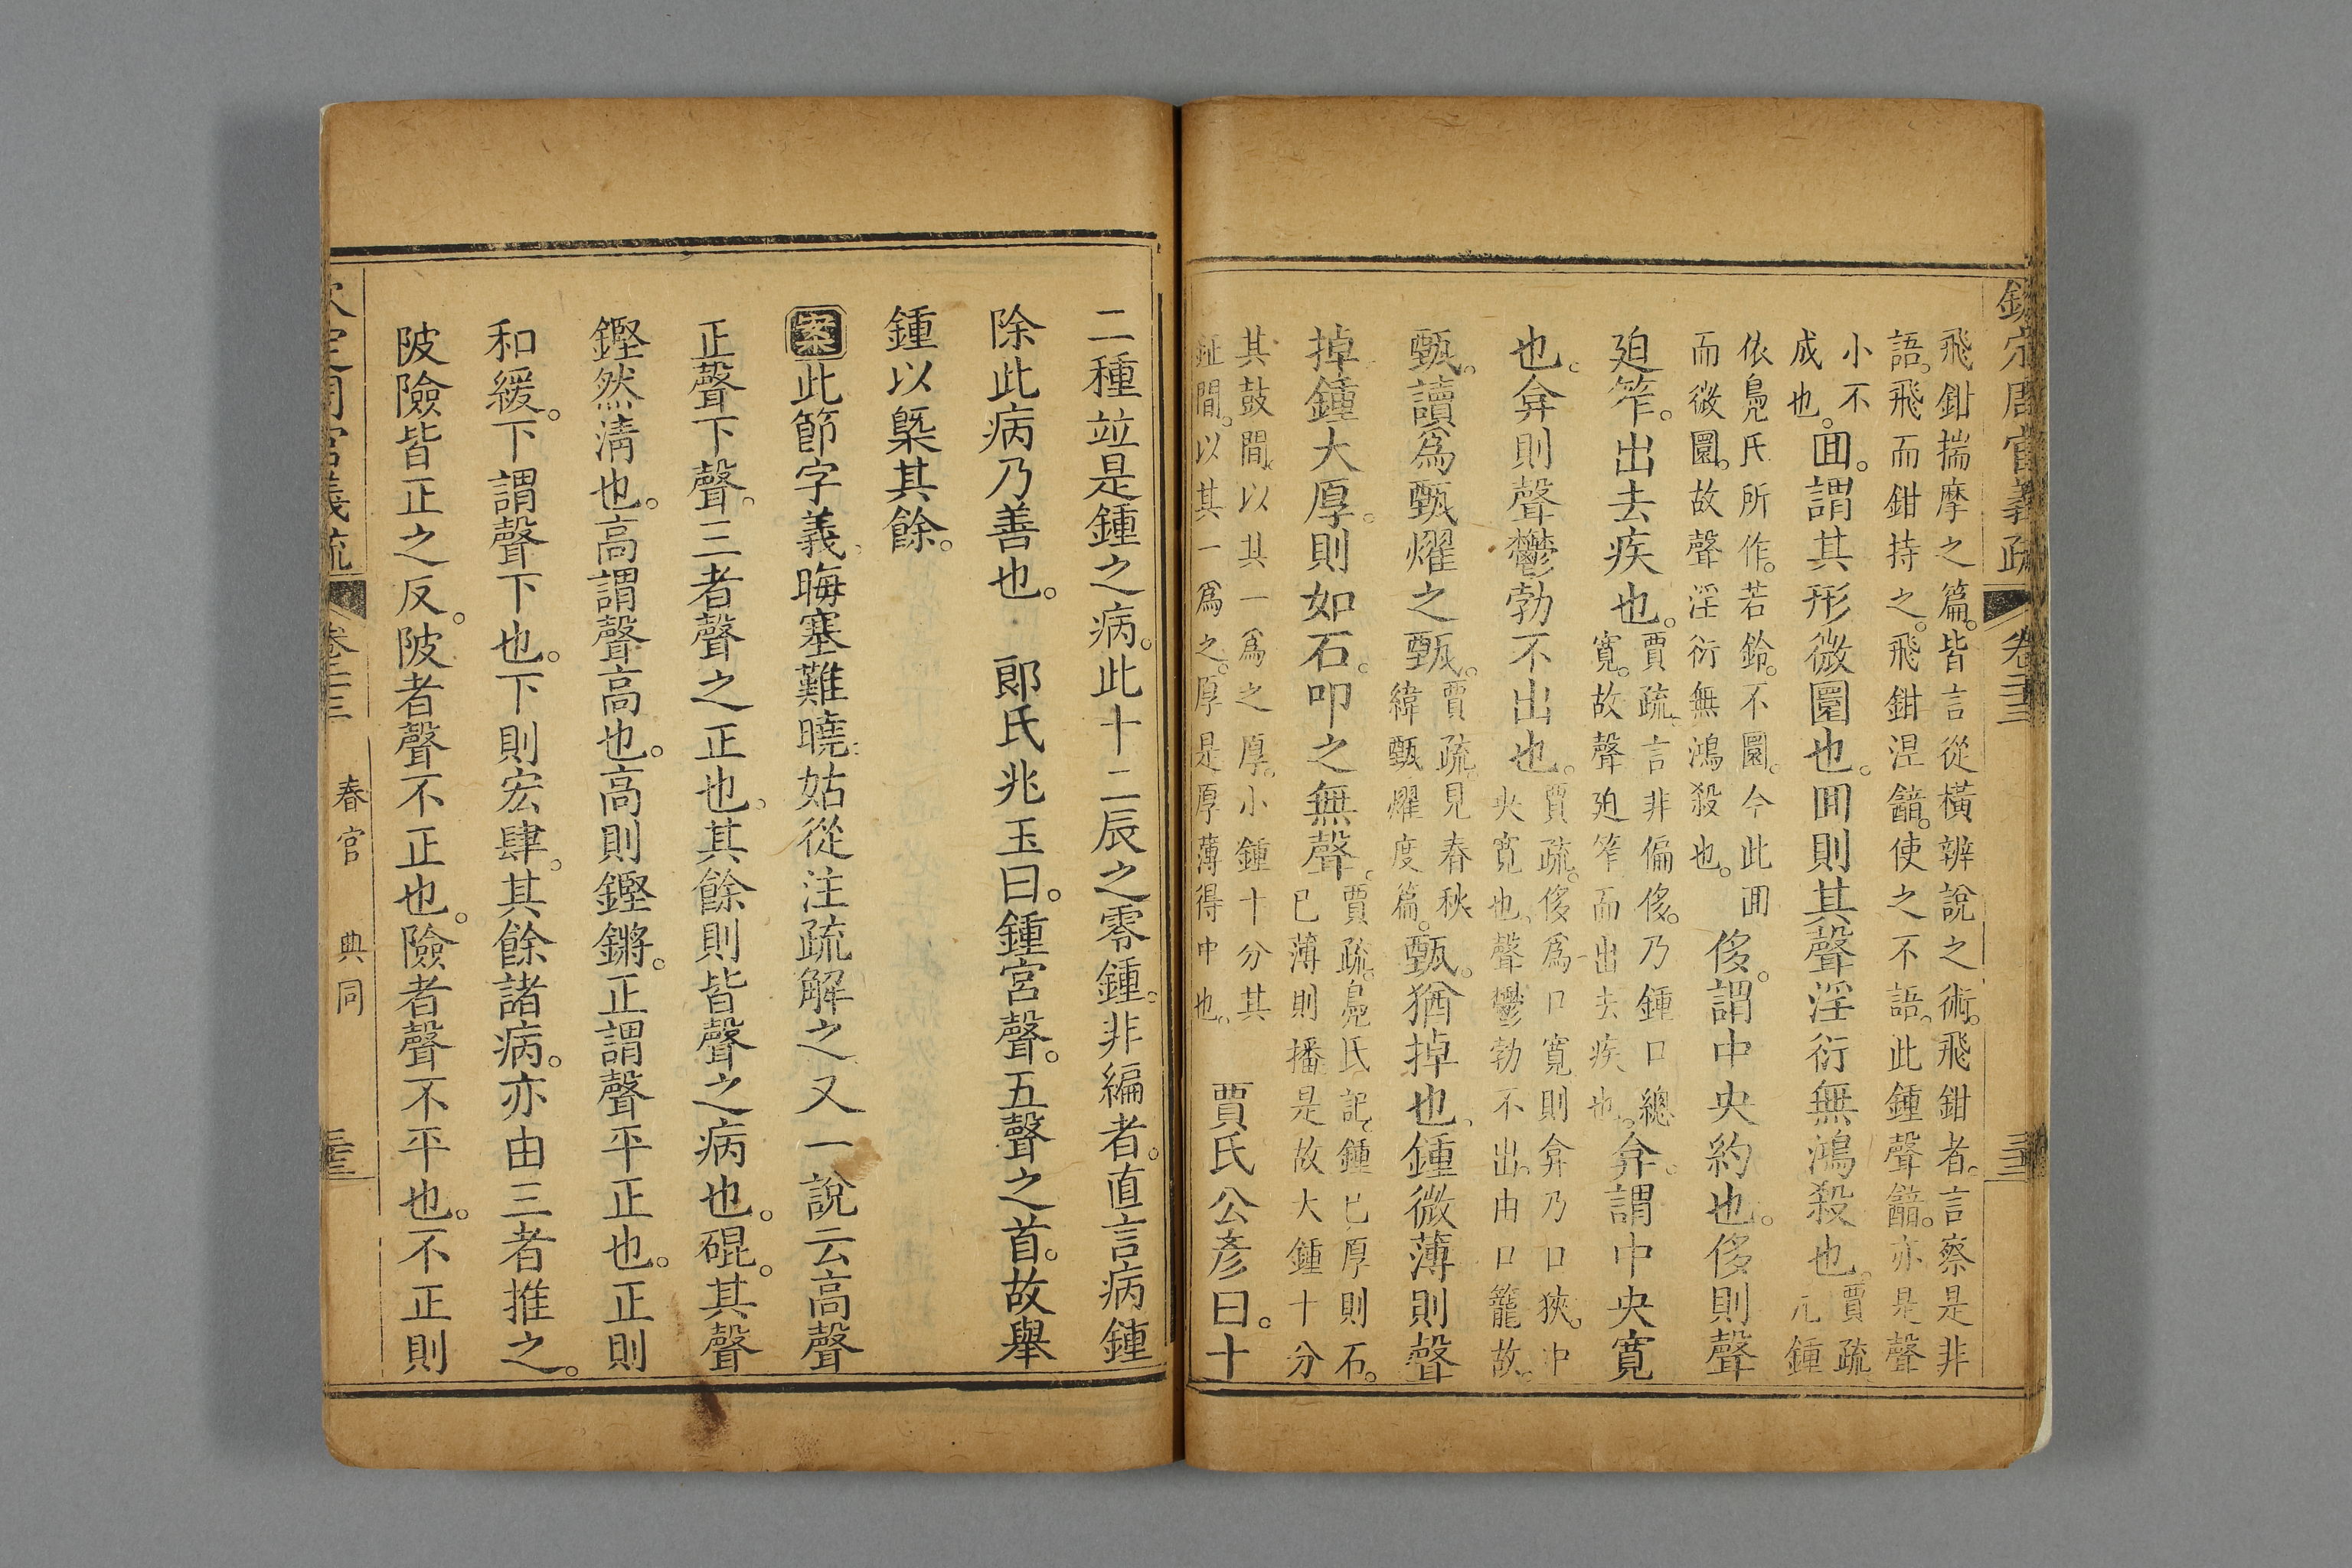 欽定周官義疏 卷二十三
飛鉗揣摩之篇。皆言從橫辨說之術。飛鉗者。言察是非
語。飛而鉗持之。飛鉗涅韽。使之不語。此鍾聲韽。亦是聲
小不
成也。
𢌞。謂其形微圜也。𢌞則其聲淫衍無鴻殺也。
賈疏
凡鍾
依鳧氏所作。若鈴。不圜。今此𢌞
而微圜。故聲淫衍無鴻殺也。
侈。謂中央約也。侈則聲
迫笮。出去疾也。
賈疏。言非偏侈。乃鍾口總
寬。故聲迫笮而出去疾也。
弇。謂中央寬
也。弇則聲鬱勃不出也。
賈疏。侈爲口寬則弇乃口狹。中
央寬也。聲鬱勃不出。由口籠故。
甄。讀爲甄燿之甄。
賈疏。見春秋
緯甄燿度篇。
甄。猶掉也。鍾微薄則聲
掉鍾大厚。則如石。叩之無聲。
賈疏。鳧氏記。鍾已厚則石。
已薄則播是故大鍾十分
其鼓間。以其一爲之厚。小鍾十分其
鉦間。以其一爲之。厚是厚薄得中也。
賈氏公彥曰。十
二種竝是鍾之病。此十二辰之零鍾。非編者。直言病鍾
除此病乃善也。 郞氏兆玉曰。鍾宮聲。五聲之首。故舉
鍾以槩其餘。
案此節字義。晦塞難曉。姑從注疏解之又一說云高聲
正聲下聲。三者聲之正也。其餘則皆聲之病也。硍。其聲
鏗然淸也。高謂聲高也。高則鏗鏘。正謂聲平正也。正則
和緩。下謂聲下也。下則宏肆。其餘諸病。亦由三者推之。
陂險皆正之反。陂者聲不正也。險者聲不平也。不正則
定周官義疏 卷二十三 春官 典同